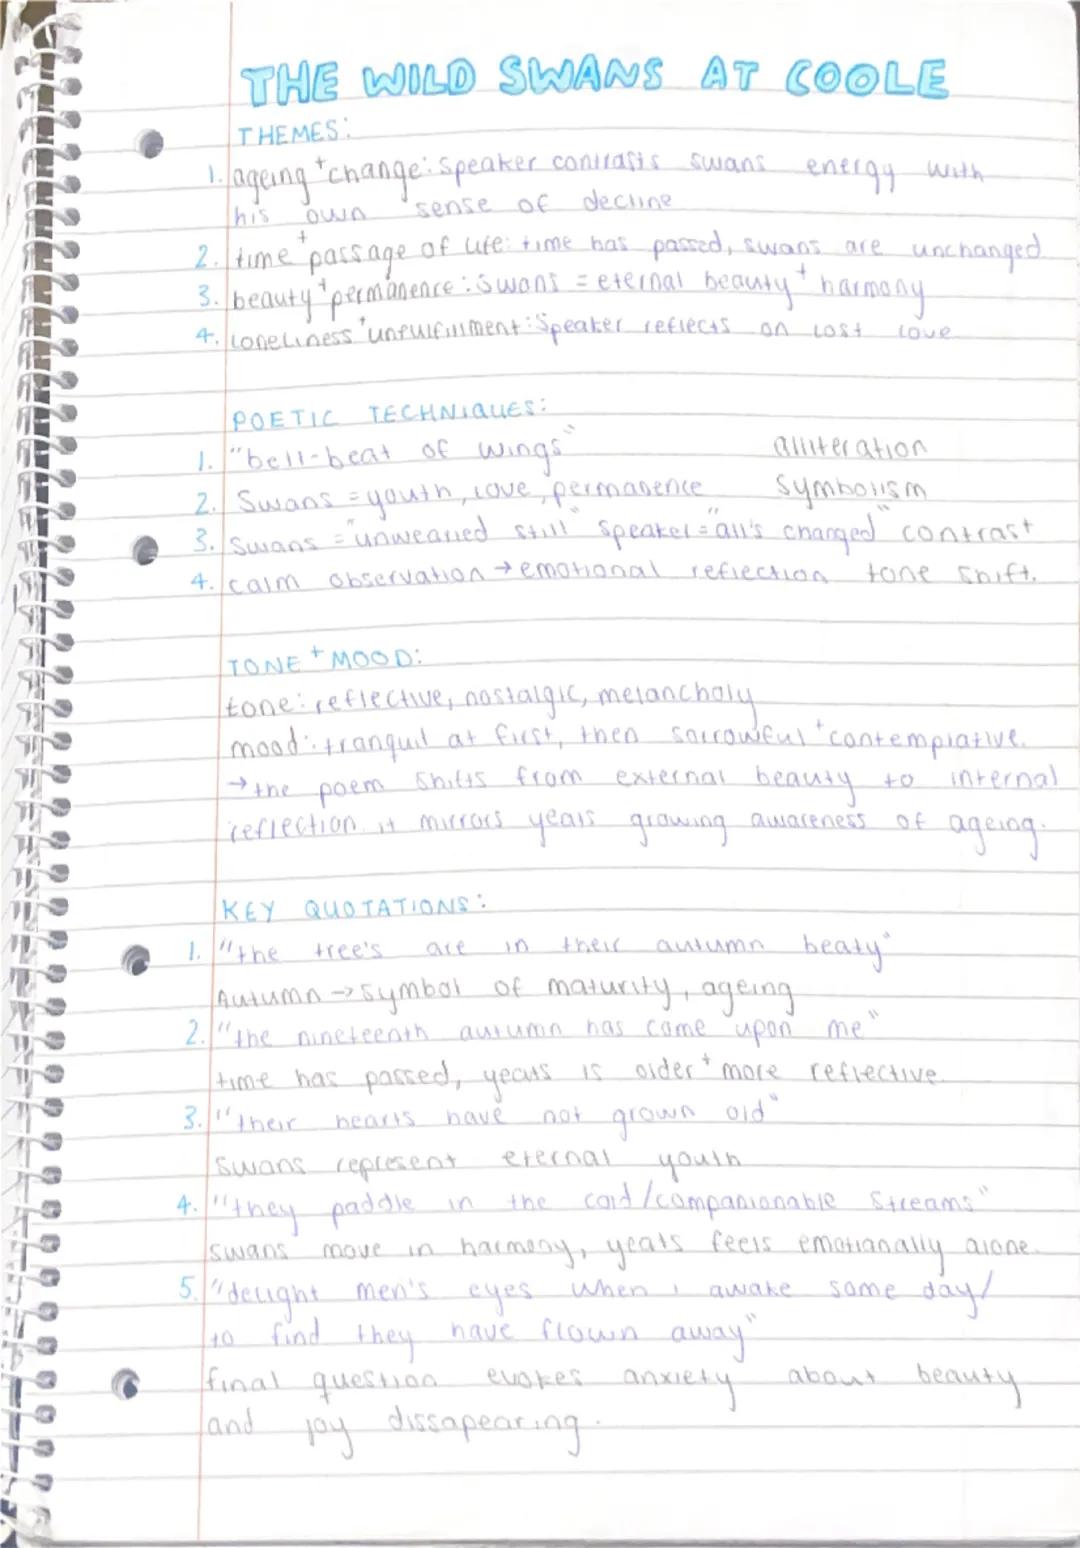 THE WILD SWANS AT COOLE
THEMES:
1. ageing + change: speaker contrasts swans energy with
his own sense of decline
2. time + passage of life: time has passed, swans are unchanged
3. beauty + permanence: swans = eternal beauty + harmony
4. loneliness + unfulfillment: speaker reflects on lost love
POETIC TECHNIQUES:
1. "bell-beat of wings" alliteration
2. Swans = youth, love, permanence symbolism
3. Swans = "unwearied still" speaker = "all's changed" contrast
4. calm observation → emotional reflection tone shift.
TONE + MOOD:
tone: reflective, nostalgic, melancholy
mood: tranquil at first, then sorrowful + contemplative.
→ the poem shifts from external beauty to internal
reflection. it mirrors yeats growing awareness of ageing.
KEY QUOTATIONS:
1. "the tree's are in their autumn beaty"
Autumn → symbol of maturity, ageing
2. "the nineteenth autumn has come upon me"
time has passed, yeats is older + more reflective.
3. "their hearts have not grown old"
swans represent eternal youth
4. "they paddle in the cold/companionable streams"
swans move in harmony, yeats feels emotionally alone.
5. "delight men's eyes when i awake some day/
to find they have flown away"
final question evokes anxiety about beauty
and joy dissapearing.